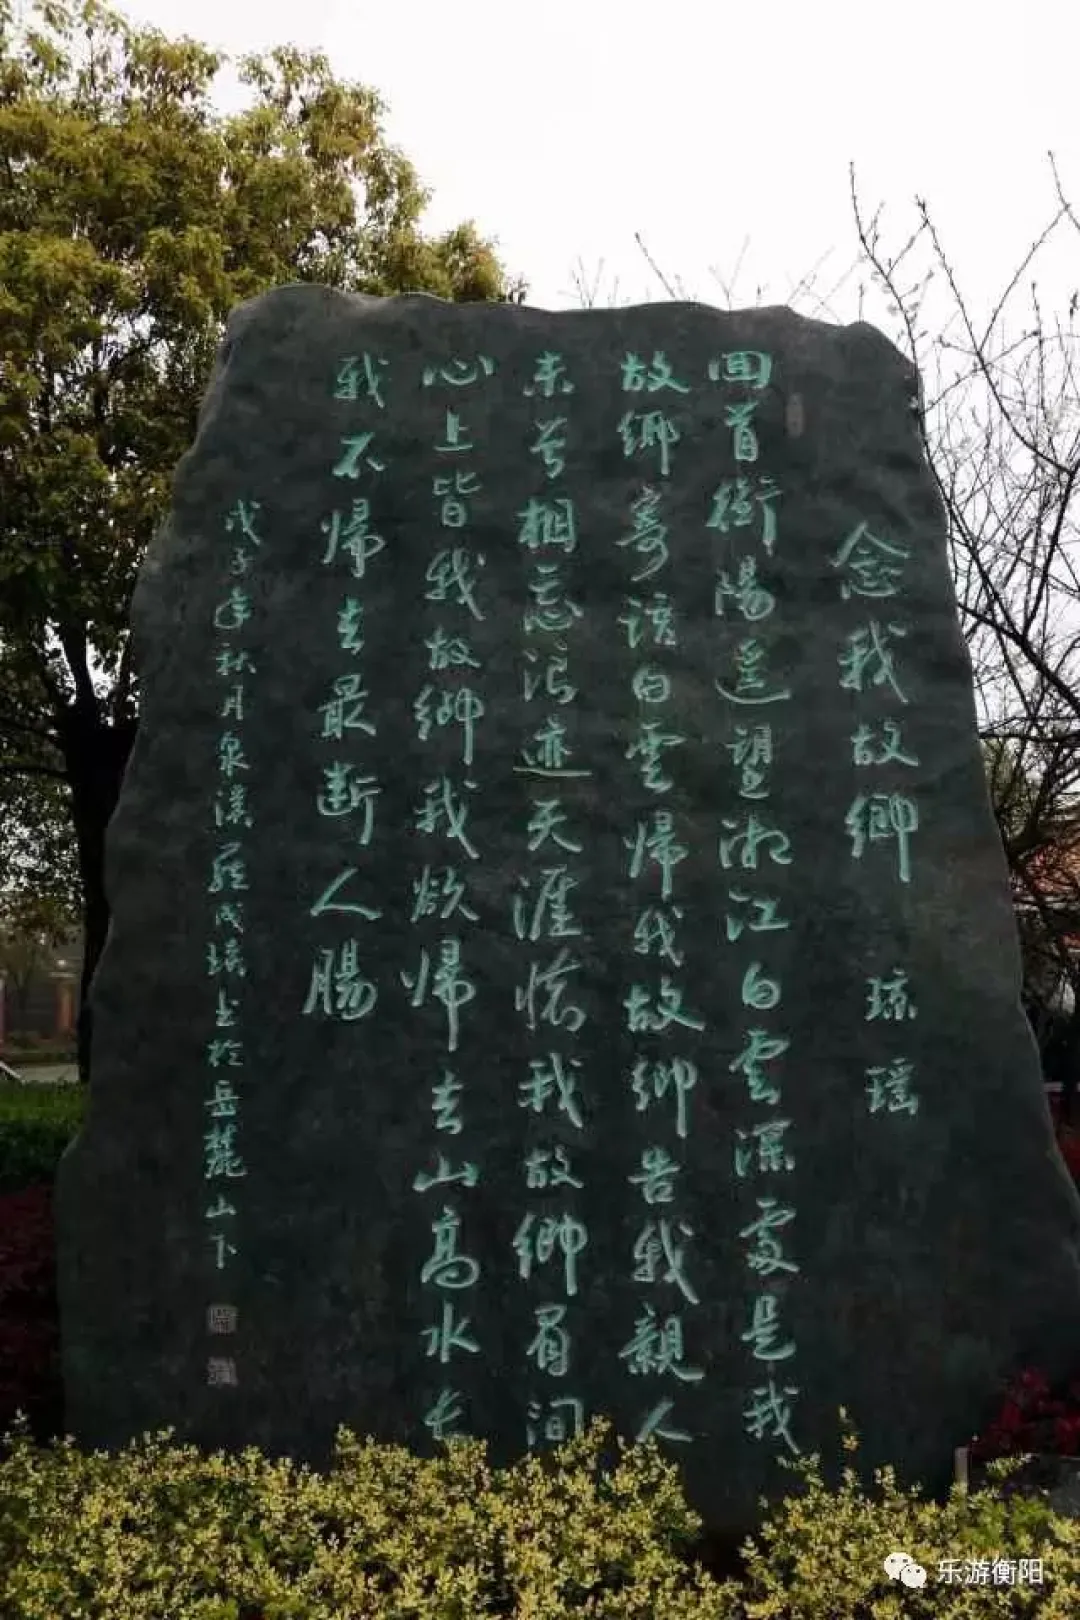 念我故鄉 琼瑶
回首衡陽遥望湘江白雲深處是我
故鄉寄语白雲歸我故鄉告我親人
未曾相忘浪迹天涯懷我故鄉眉间
心上皆我故鄉我欲歸去山高水长
我不歸去最断人腸
戊子年秋月泉溪羅成 书於岳麓山下
乐游衡阳